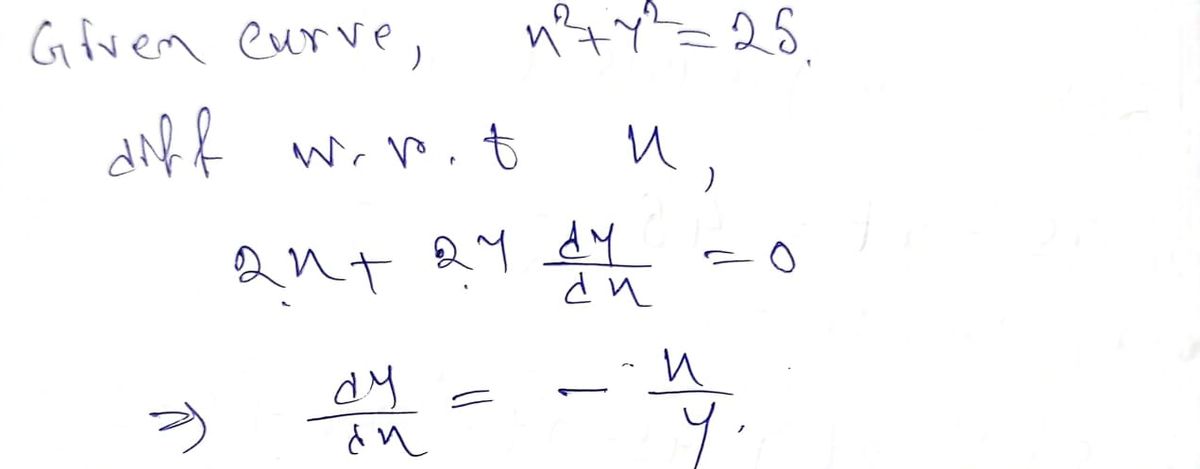 Given curve, x²+y²=25.
diff w.r.t x,
2x+2y dy/dx =0
⇒ dy/dx = - x/y.